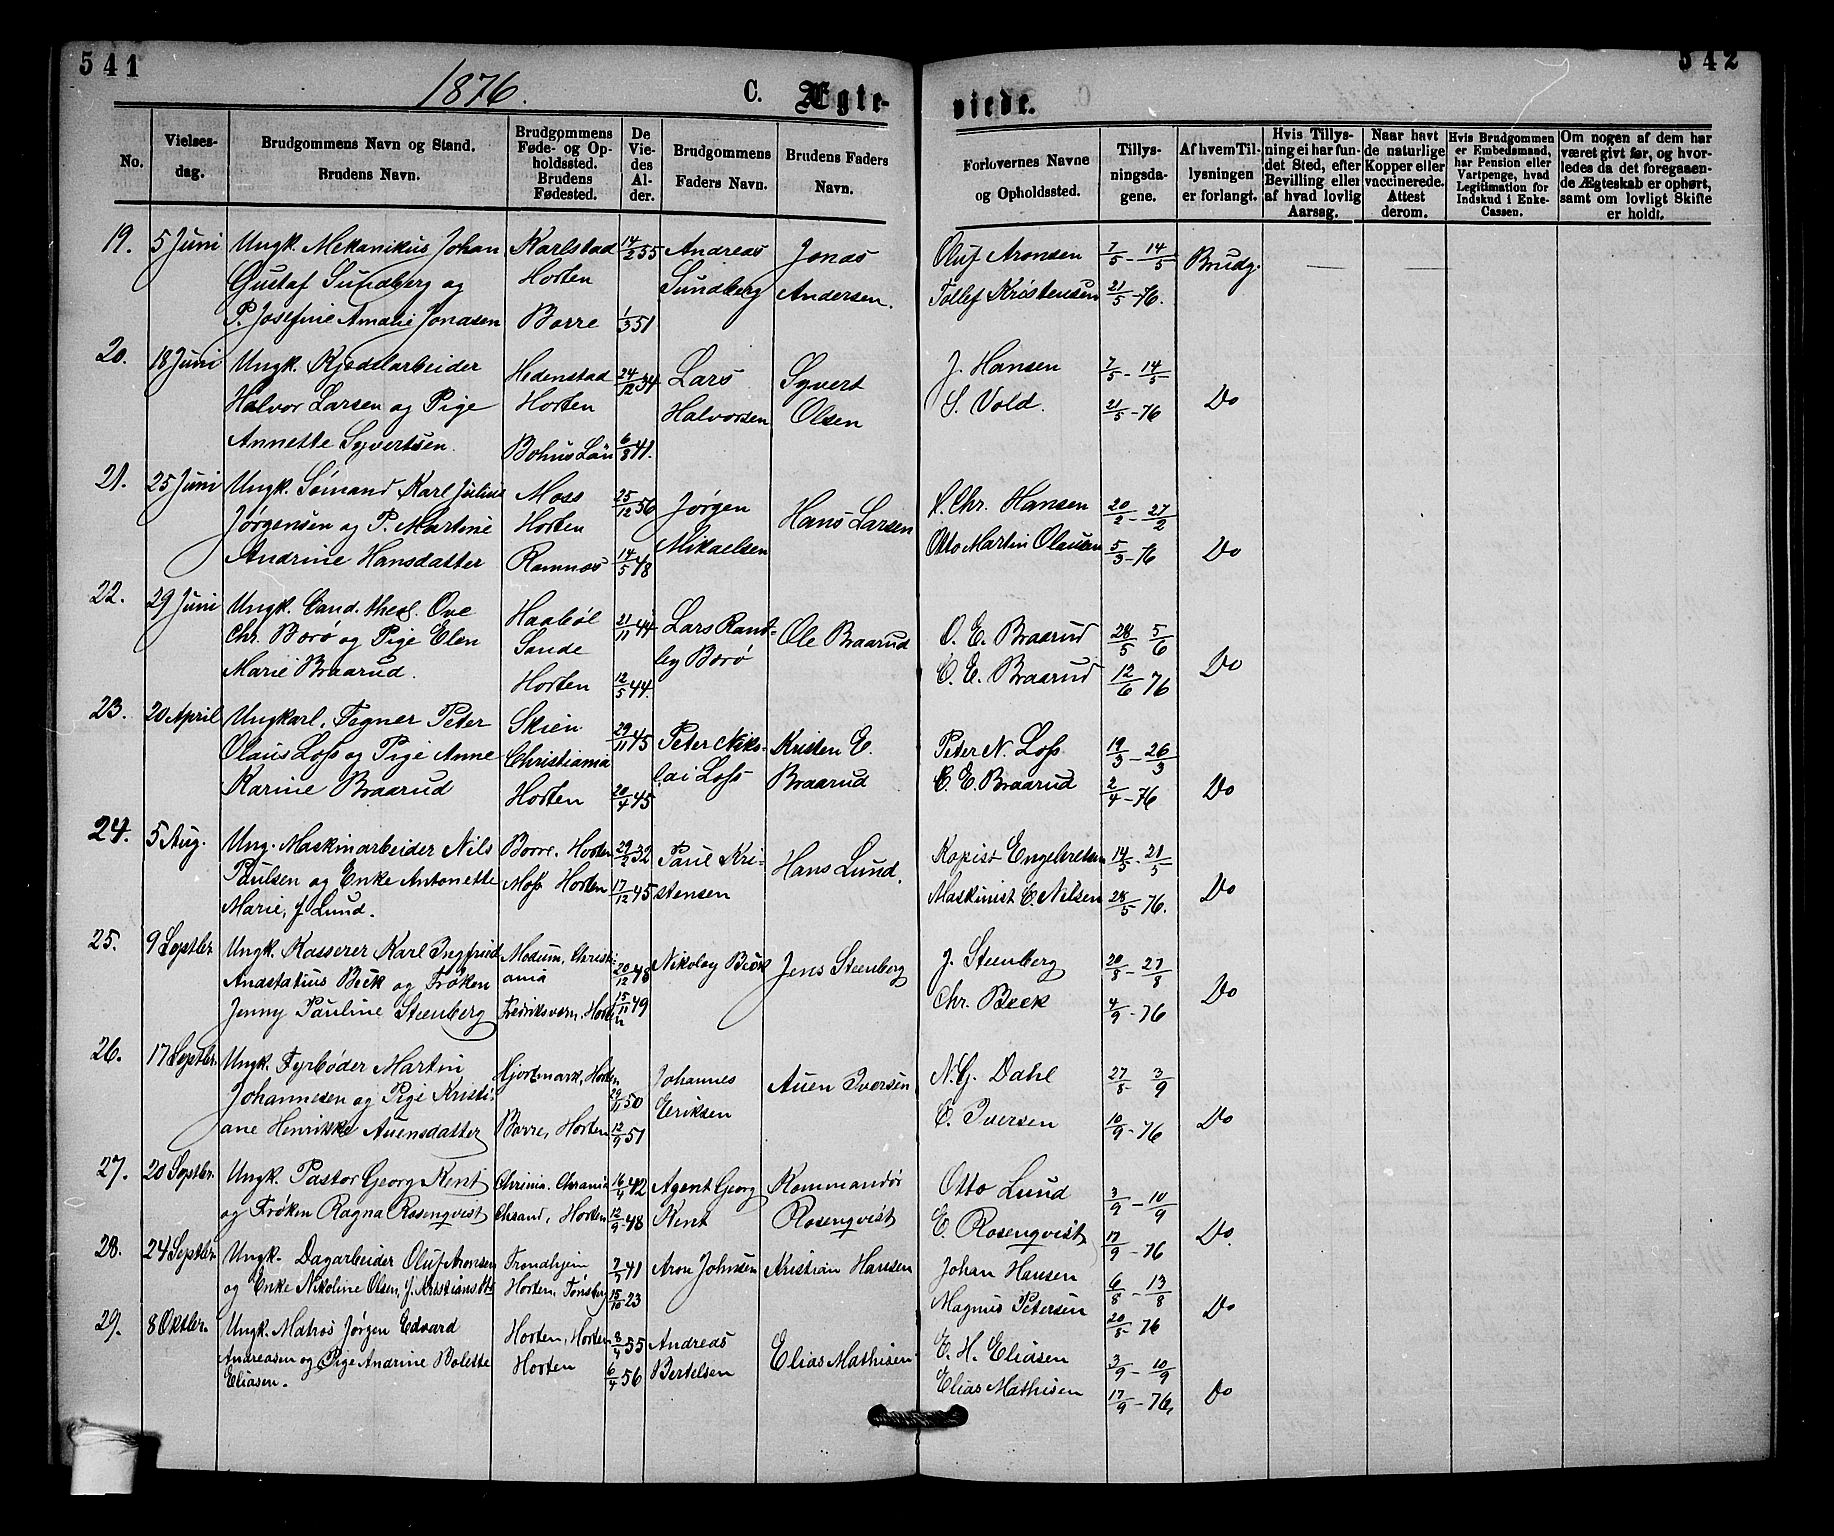 541
542
1876.
C. Ægte-
viede.
No.
Vielses-
dag.
Brudgommens Navn og Stand.
Brudens Navn.
Brudgommens
Føde- og Op-
holdssted.
Brudens
Fødested.
De
Vie-
des
Al-
der.
Brudgommens
Faders Navn.
Brudens Faders
Navn.
Forlovernes Navne
og Opholdssted.
Tillys-
ningsda-
gene.
Af hvem Til-
lysningen
er forlangt.
Hvis Tillys-
ning ei har fun-
det Sted, efter
Bevilling eller
af hvad lovlig
Aarsag.
Naar havt
de naturlige
Kopper eller
vaccinerede.
Attest
derom.
Hvis Brudgommen
er Embedsmand,
har Pension eller
Vartpenge, hvad
Legitimation for
Indskud i Enke-
Cassen.
Om nogen af dem har
været givt før, og hvor-
ledes da det foregaaen-
de Ægteskab er ophørt,
samt om lovligt Skifte
er holdt.
19. 5 Juni Ungk. Mekanikus Johan Karlstad 14/2 55 Andreas Jonas Oluf Aronsen 7/5 - 14/5 Brudg.
Gustaf Sundberg og Horten Sundberg Andersen. Tollef Kristensen 21/5 - 76.
P. Josefine Amalie Jonasen Borre 1/3 51
20. 18 Juni Ungk. Kjedelarbeider Hedenstad 24/12 34 Lars Syvert J. Hansen 7/5 - 14/5
Halvor Larsen og Pige Horten Halvorsen Olsen S. Vold. 21/5 - 76 Do
Annette Syvertsen. Bohus Län 6/8 41.
21. 25 Juni Ungk. Sømand Karl Julius Moss 25/12 56 Jørgen Hans Larsen Chr. Hansen 20/2 - 27/2
Jørgensen og P. Martine Horten Mikaelsen Otto Martin Olausen 5/3 - 76 Do
Andrine Hansdatter Ramnæs 14/5 48
22. 29 Juni Ungk. Cand. theol. Ove Haabøl 21/11 44 Lars Rant- Ole Braarud O. E. Braarud 28/5 5/6
Chr. Børø og Pige Elen Sande ley Børø C. E. Braarud 12/6 76 Do
Marie Braarud. Horten 12/5 44.
23. 20 April Ungkarl. Tegner Peter Skien 29/11 45 Peter Niko- Kristen E. Peter N. Loſs 19/3 - 26/3
Olaus Loſs og Pige Anne Christiania lai Loſs Braarud C. E. Braarud 2/4 - 76 Do
Karine Braarud Horten 20/4 45
24. 5 Aug. Ung. Maskinarbeider Nils Borre. Horten 29/2 32 Paul Kri- Hans Lund. Kopist Engebretsen 14/5 - 21/5
Paulsen og Enke Antonette Moſs Horten 17/12 45 stensen Maskinist C. Nilsen 28/5 - 76. Do
Marie, f. Lund.
25. 9 Septbr. Ungk. Kasserer Karl Ingfried Modum, Christi- 20/12 48 Nikolay Beck Jens Steenberg J. Steenberg 20/8 - 27/8
Anastatius Beck og Frøken ania 15/11 49 Chr. Beck 4/9 - 76 Do
Jenny Pauline Steenberg Fredriksværn, Horten
26. 17 Septbr. Ungk. Fyrbøder Martin Hjortmark, Horten 29/11 50 Johannes Auen Iversen N. G. Dahl 27/8 3/9
Johannesen og Pige Kristi- Eriksen C. Iversen 10/9 - 76 Do
ane Henrikke Auensdatter Borre, Horten 12/9 51
27. 20 Septbr. Ungk. Pastor Georg Kent Chrinia. Chrania 16/4 42 Agent Georg Kommandør Otto Lund 3/9 - 10/9
og Frøken Ragna Rosenqvist Chrsand, Horten 12/9 48 Kent Rosenqvist E. Rosenqvist 17/9 - 76 Do.
28. 24 Septbr. Ungk. Dagarbeider Oluf Aronsen Trondhjem 7/7 41 Aron Johnsen Kristian Hansen Johan Hansen 6/8 - 13/8
og Enke Nikoline Olsen, f. Kristiansdtr Horten, Tønsberg 15/10 23 Magnus Petersen 20/8 - 76 Do
29. 8 Oktbr. Ungk. Matros Jørgen Edvard Horten, Horten 8/4 55 Andreas Elias Mathisen E. H. Eliasen 3/9 - 10/9
Andreasen og Pige Andrine Bolette Horten 6/4 56 Bertelsen Elias Mathisen 17/9 - 76, Do
Eliasen.